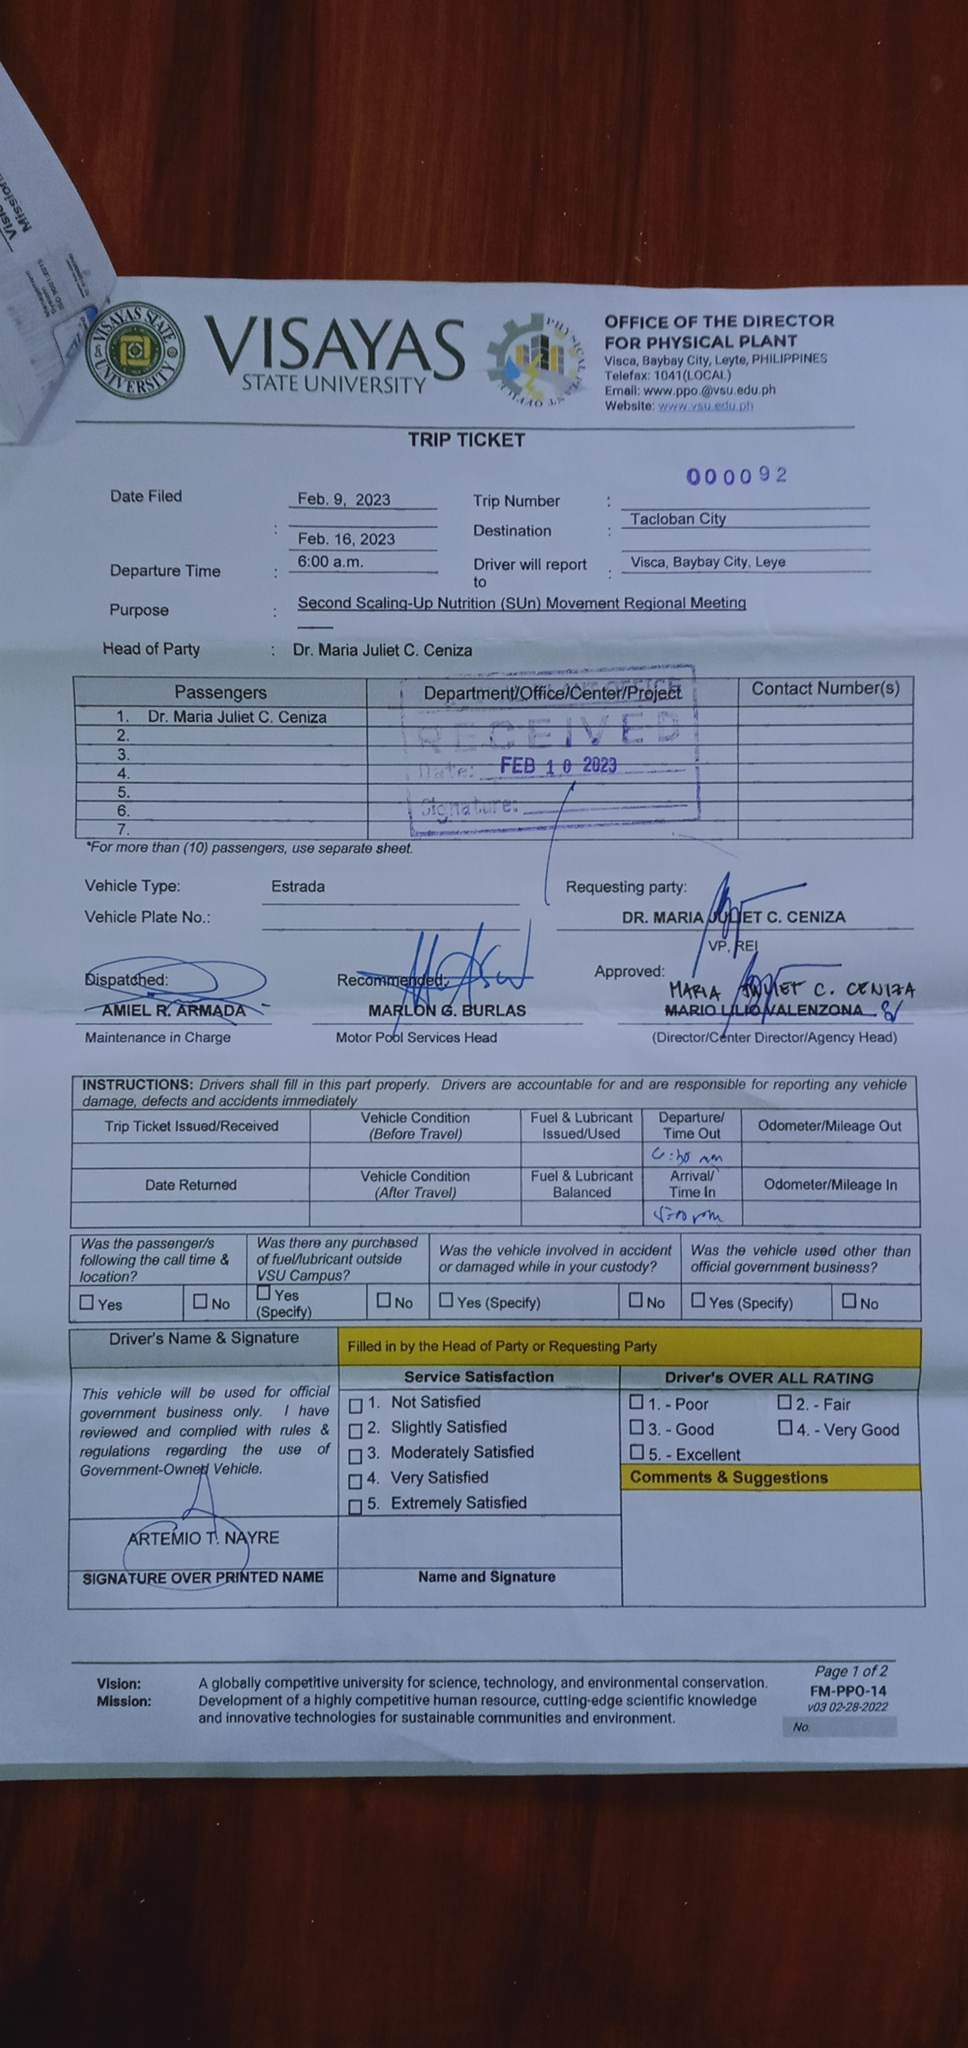 VISAYAS STATE UNIVERSITY
VISAYAS
STATE UNIVERSITY
OFFICE OF THE DIRECTOR
FOR PHYSICAL PLANT
Visca, Baybay City, Leyte, PHILIPPINES
Telefax: 1041(LOCAL)
Email: www.ppo.@vsu.edu.ph
Website: www.vsu.edu.ph
TRIP TICKET
000092
Date Filed Feb. 9, 2023 Trip Number :
: Feb. 16, 2023 Destination : Tacloban City
Departure Time : 6:00 a.m. Driver will report to : Visca, Baybay City, Leye
Purpose : Second Scaling-Up Nutrition (SUn) Movement Regional Meeting
Head of Party : Dr. Maria Juliet C. Ceniza
Passengers Department/Office/Center/Project Contact Number(s)
1. Dr. Maria Juliet C. Ceniza
2.
3.
4.
5.
6.
7.
RECEIVED
Date: FEB 10 2023
Signature:
*For more than (10) passengers, use separate sheet.
Vehicle Type: Estrada Requesting party:
Vehicle Plate No.: DR. MARIA JULIET C. CENIZA
VP, REI
Dispatched: Recommended: Approved:
MARIA JULIET C. CENIZA
AMIEL R. ARMADA MARLON G. BURLAS MARIO LILIO VALENZONA
Maintenance in Charge Motor Pool Services Head (Director/Center Director/Agency Head)
INSTRUCTIONS: Drivers shall fill in this part properly. Drivers are accountable for and are responsible for reporting any vehicle
damage, defects and accidents immediately
Trip Ticket Issued/Received Vehicle Condition (Before Travel) Fuel & Lubricant Issued/Used Departure/ Time Out Odometer/Mileage Out
Date Returned Vehicle Condition (After Travel) Fuel & Lubricant Balanced Arrival/ Time In Odometer/Mileage In
Was the passenger/s following the call time & location? Was there any purchased of fuel/lubricant outside VSU Campus? Was the vehicle involved in accident or damaged while in your custody? Was the vehicle used other than official government business?
Yes No Yes (Specify) No Yes (Specify) No Yes (Specify) No
Driver's Name & Signature Filled in by the Head of Party or Requesting Party
Service Satisfaction Driver's OVER ALL RATING
This vehicle will be used for official
government business only. I have
reviewed and complied with rules &
regulations regarding the use of
Government-Owned Vehicle.
1. Not Satisfied
2. Slightly Satisfied
3. Moderately Satisfied
4. Very Satisfied
5. Extremely Satisfied
1. - Poor 2. - Fair
3. - Good 4. - Very Good
5. - Excellent
Comments & Suggestions
ARTEMIO T. NAYRE
SIGNATURE OVER PRINTED NAME Name and Signature
Page 1 of 2
FM-PPO-14
v03 02-28-2022
No.
Vision: A globally competitive university for science, technology, and environmental conservation.
Mission: Development of a highly competitive human resource, cutting-edge scientific knowledge
and innovative technologies for sustainable communities and environment.